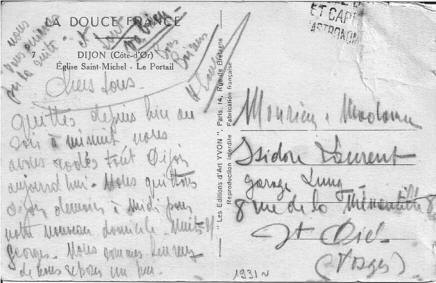 LA DOUCE FRANCE
7
DIJON (Côte-d'Or)
Église Saint-Michel - Le Portail
nous
vous
Chers tous.
Quittés depuis hier au
soir à minuit, nous
avons rodés tout Dijon
aujourd'hui. Nous quittons
Dijon demain à midi pour
notre nouveau domicile. Nuits St
Georges. Nous sommes heureux
de nous reposer un peu.
1931
" Les Éditions d'Art YVON ", Paris, 14, Rue de Bretagne
Reproduction interdite
Fabrication française
ET CAPI
ASTRONOM
Monsieur & Madame
Isidore Laurent
garage Lung
8 rue de la Ménantille 8
St Dié
(Vosges)